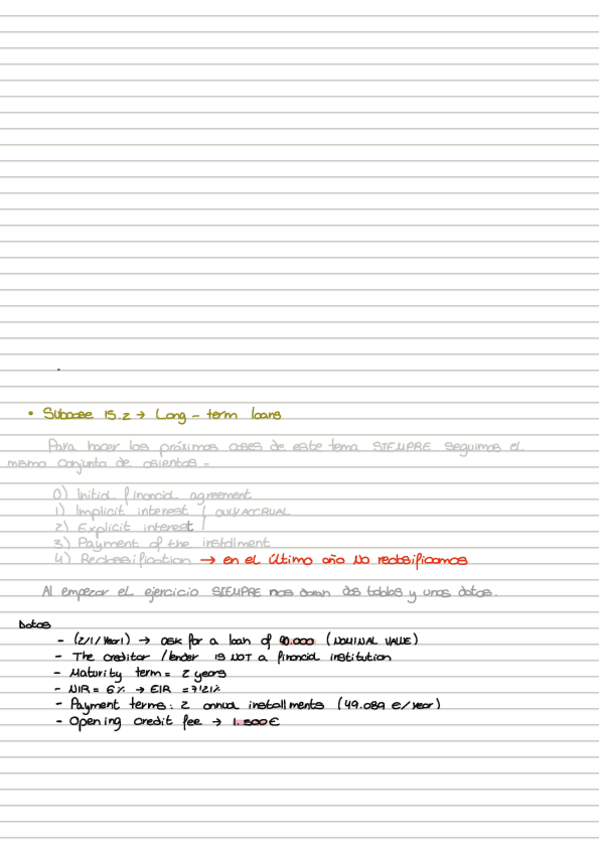 • Subcase 15.2 → Long-term loans
Para hacer los próximos cases de este tema SIEMPRE seguimos el
mismo conjunto de asientos -
0) Initial financial agreement
1) Implicit interest /
2) Explicit interest /
3) Payment of the installment
4) Reclassification → en el último año NO reclasificamos
Al empezar el ejercicio SIEMPRE nos daran dos tablas y unos datos.
Datos
- (2/1/Year1) → ask for a loan of 90.000 (NOMINAL VALUE)
- The creditor / lender is NOT a financial institution
- Maturity term = 2 years
- NIR = 6% → EIR = 7'21%
- Payment terms: 2 annual installments (49.089 €/year)
- Opening credit fee → 1.500€